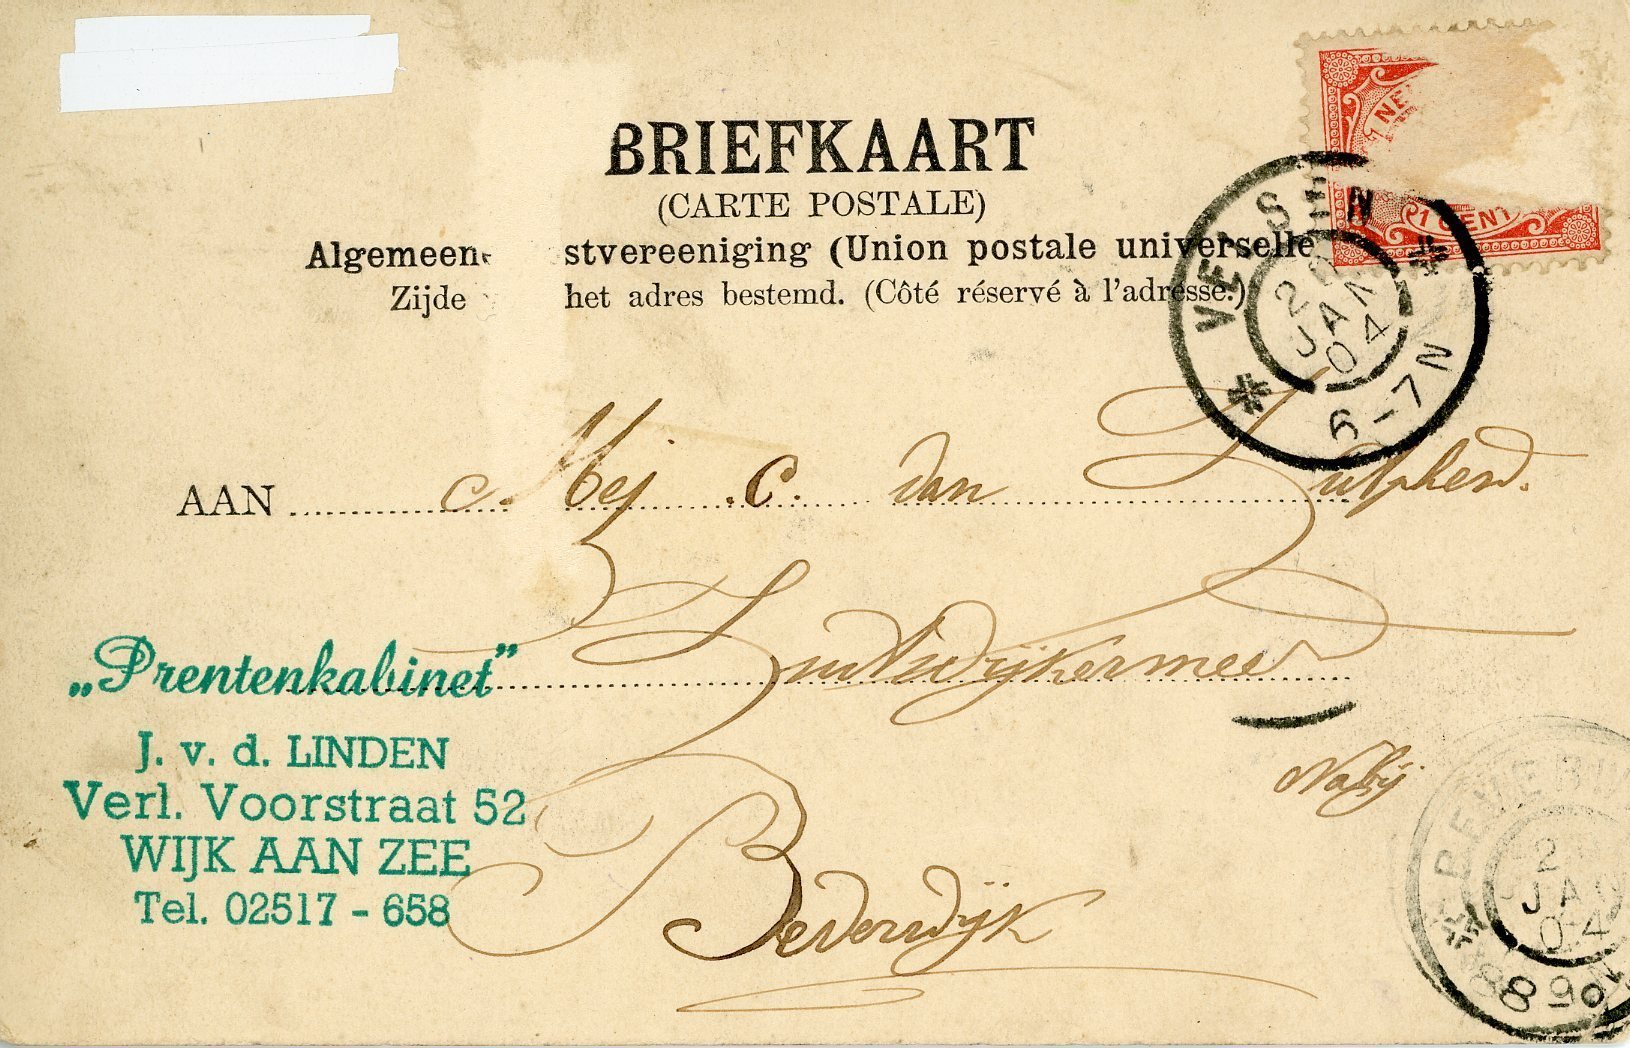 BRIEFKAART
(CARTE POSTALE)
Algemeene stvereeniging (Union postale universelle
Zijde het adres bestemd. (Côté réservé à l'adresse.)
1 CENT
VELSEN
20
JAN
04
6-7N
AAN Mej C. van Zutphen.
Zuidwijkermeer
Nabij
Beverwijk
„Prentenkabinet”
J. v. d. LINDEN
Verl. Voorstraat 52
WIJK AAN ZEE
Tel. 02517 - 658
JA
04